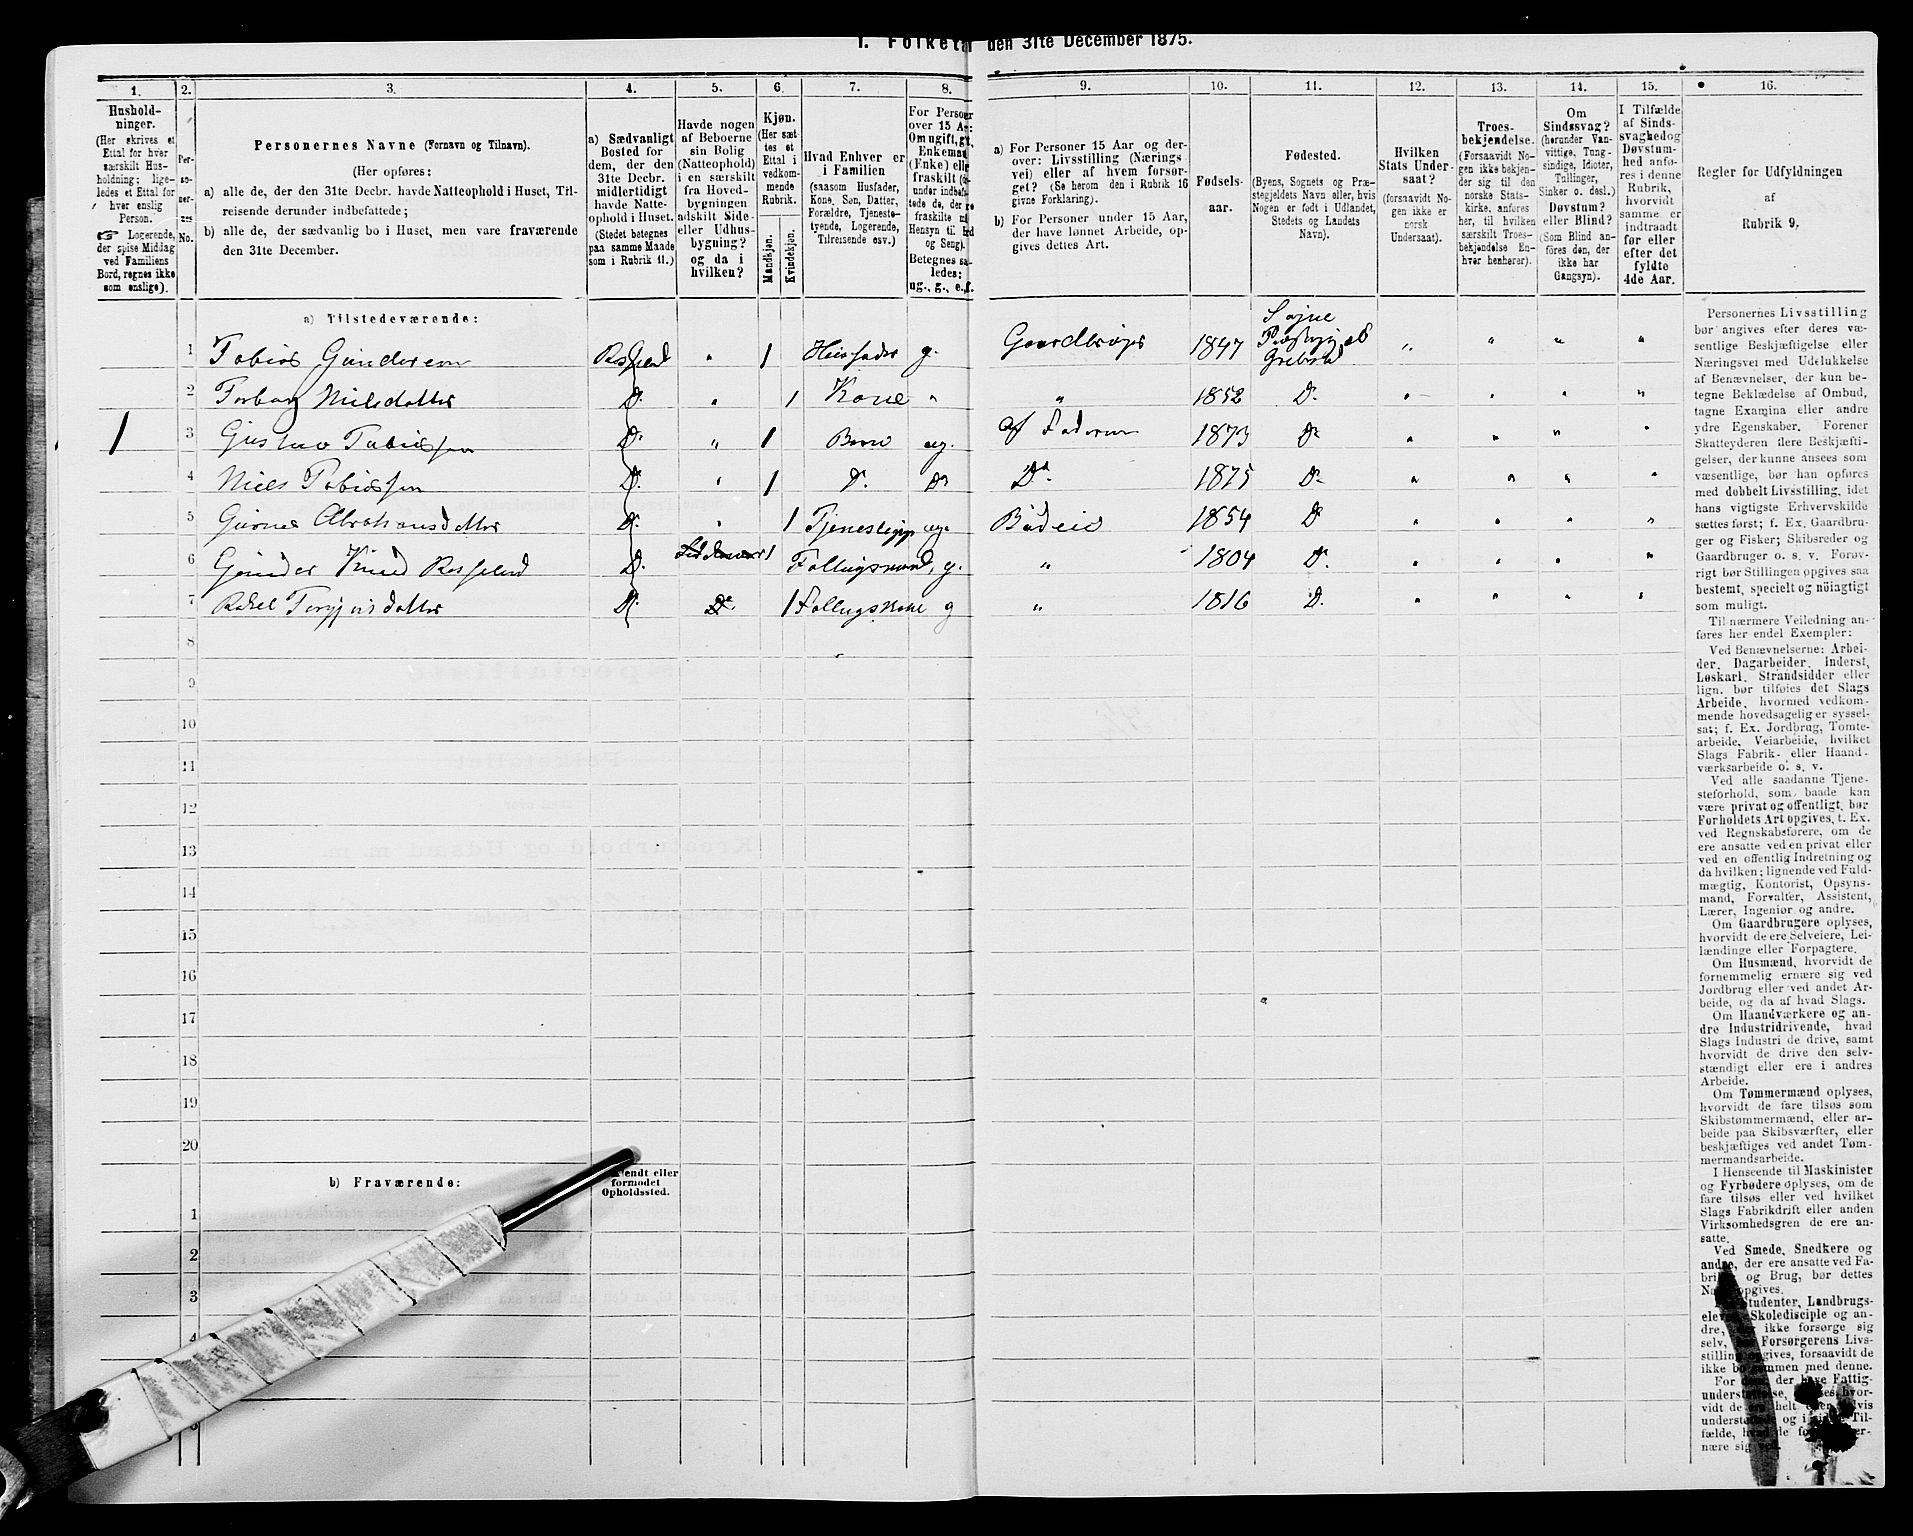 I. Folketal den 31te December 1875.
1.
2.
3.
4.
5.
6.
7.
8.
9.
10.
11.
12.
13.
14.
15.
16.
Hushold-
ninger.
(Her skrives et
Ettal for hver
særskilt Hus-
holdning; lige-
ledes et Ettal for
hver enslig
Person.
☞ Logerende,
der spise Middag
ved Familiens
Bord, regnes ikke
som enslige).
Per-
so-
ner-
nes
No.
Personernes Navne (Fornavn og Tilnavn).
(Her opføres:
a) alle de, der den 31te Decbr. havde Natteophold i Huset, Til-
reisende derunder indbefattede;
b) alle de, der sædvanlig bo i Huset, men vare fraværende
den 31te December.
a) Sædvanligt
Bosted for
dem, der den
31te Decbr.
midlertidigt
havde Natte-
ophold i Huset.
(Stedet betegnes
paa samme Maade
som i Rubrik 11.)
Havde nogen
af Beboerne
sin Bolig
(Natteophold)
i en særskilt
fra Hoved-
bygningen
adskilt Side-
eller Udhus-
bygning?
og da i
hvilken?
Kjøn.
(Her sæt-
tes et
Ettal i
vedkom-
mende
Rubrik.
Mandkjøn.
Kvindekjøn.
Hvad Enhver er
i Familien
(saasom Husfader,
Kone, Søn, Datter,
Forældre, Tjeneste-
tyende, Logerende,
Tilreisende osv.)
For Person
over 15 Aa
Om ugift, gi
Enkemand
(Enke) elle
fraskilt
under indbefat-
tede de, der
fraskilte
Hensyn til
og Seng).
Betegnes saa-
ledes:
ug., g., e., f.
a) For Personer 15 Aar og der-
over: Livsstilling (Nærings-
vei) eller af hvem forsør-
get? (Se herom den i Rubrik 16
givne Forklaring).
b) For Personer under 15 Aar,
der have lønnet Arbeide, op-
gives dettes Art.
Fødsels-
aar.
Fødested.
(Byens, Sognets og Præ-
stegjeldets Navn eller, hvis
Nogen er født i Udlandet,
Stedets og Landets
Navn).
Hvilken
Stats Under-
saat?
(forsaavidt No-
gen ikke er
norsk
Undersaat).
Troes-
bekjendelse.
(Forsaavidt No-
gen ikke bekjen-
der sig til den
norske Stats-
kirke, anføres
her, til hvilken
særskilt Troes-
bekjendelse En-
hver henhører).
Om
Sindssvag?
(herunder Van-
vittige, Tung-
sindige, Idioter,
Tullinger,
Sinker o. desl.)
Døvstum?
eller Blind?
(Som Blind an-
føres den, der
ikke har
Gangsyn).
I Tilfælde
af Sinds-
svaghed og
Døvstum-
hed anfø-
res i denne
Rubrik,
hvorvidt
samme er
indtraadt
før eller
efter det
fyldte
4de Aar.
Regler for Udfyldningen
af
Rubrik 9.
a) Tilstedeværende:
1 Tobias Gundersen Røsseland " 1 Husfader g. Gaardbruger 1847 Søgne Præstegj. " " " "
2 Torborg Nielsdatter D. " 1 Kone " " 1852 D. " " " "
1 3 Gustav Tobiassen D. " 1 Barn ug. af Faderen 1873 D. " " " "
4 Niels Tobiassen D. " 1 D. D. D. 1875 D. " " " "
5 Abrahamsdatter D. " 1 ug. 1854 D. " " " "
6 Gunder Knud Røsseland D. 1 Føllugsmand, g. " 1804 D. " " " "
7 Rakel Torgjersdatter D. D. 1 Føllugskone g " 1816 D. " " " "
8
9
10
11
12
13
14
15
16
17
18
19
20
b) Fraværende:
endt eller
formodet
Opholdssted.
1
2
3
4
Personernes Livsstilling
bør angives efter deres væ-
sentlige Beskjæftigelse eller
Næringsvei med Udelukkelse
af Benævnelser, der kun be-
tegne Beklædelse af Ombud,
tagne Examina eller andre
ydre Egenskaber. Forener
Skatteyderen flere Beskjæfti-
gelser, der kunne ansees som
væsentlige, bør han opføres
med dobbelt Livsstilling, idet
hans vigtigste Erhvervskilde
sættes først; f. Ex. Gaardbru-
ger og Fisker; Skibsreder og
Gaardbruger o. s. v. Forøv-
rigt bør Stillingen opgives saa
bestemt, specielt og nøiagtigt
som muligt.
Til nærmere Veiledning an-
føres her endel Exempler:
Ved Benævnelserne: Arbei-
der, Dagarbeider, Inderst,
Løskarl, Strandsidder eller
lign. bør tilføies det Slags
Arbeide, hvormed vedkom-
mende hovedsagelig er syssel-
sat; f. Ex. Jordbrug, Tomte-
arbeide, Veiarbeide, hvilket
Slags Fabrik- eller Haand-
værksarbeide o. s. v.
Ved alle saadanne Tjene-
steforhold, som baade kan
være privat og offentligt, bør
Forholdets Art opgives, t. Ex.
ved Regnskabsførere, om de
ere ansatte ved en privat eller
ved en offentlig Indretning og
da hvilken; lignende ved Fuld-
mægtig, Kontorist, Opsyns-
mand, Forvalter, Assistent,
Lærer, Ingeniør og andre.
Om Gaardbrugere oplyses,
hvorvidt de ere Selveiere, Lei-
lændinge eller Forpagtere.
Om Husmænd, hvorvidt de
fornemmelig ernære sig ved
Jordbrug eller ved andet Ar-
beide, og da af hvad Slags.
Om Haandværkere og an-
dre Industridrivende, hvad
Slags Industri de drive, samt
hvorvidt de drive den selv-
stændigt eller ere i andres
Arbeide.
Om Tømmermænd oplyses,
hvorvidt de fare tilsøs som
Skibstømmermænd, eller ar-
beide paa Skibsværfter, eller
beskjæftiges ved andet Tøm-
mermandsarbeide.
I Henseende til Maskinister
og Fyrbødere oplyses, om de
fare tilsøs eller ved hvilket
Slags Fabrikdrift eller anden
Virksomhedsgren de ere an-
satte.
Ved Smede, Snedkere og
andre, der ere ansatte ved Fa-
og Brug, bør dettes
opgives.
Studenter, Landbrugs-
elever, Skoledisciple og an-
dre, ikke forsørge sig
selv, Forsørgerens Livs-
stilling opgives, forsaavidt de
ikke bo sammen med denne.
For der have Fattig-
understøttelse, hvor-
vidt de helt
understøttede og i Til-
fælde, de
nære sig